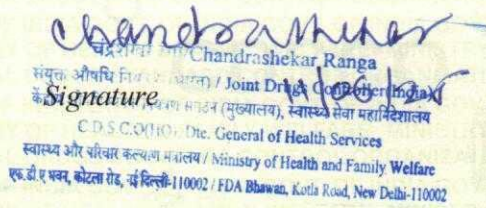 Chandrashekar
चंद्रशेखर रांगा/Chandrashekar Ranga
संयुक्त औषधि नियंत्रक (भारत) / Joint Drugs Controller (India)
11/06/25
Signature
मुख्यालय), स्वास्थ्य सेवा महानिदेशालय
C.D.S.C.O(HQ), Dte. General of Health Services
स्वास्थ्य और परिवार कल्याण मंत्रालय / Ministry of Health and Family Welfare
एफ.डी.ए भवन, कोटला रोड, नई दिल्ली-110002 / FDA Bhawan, Kotla Road, New Delhi-110002